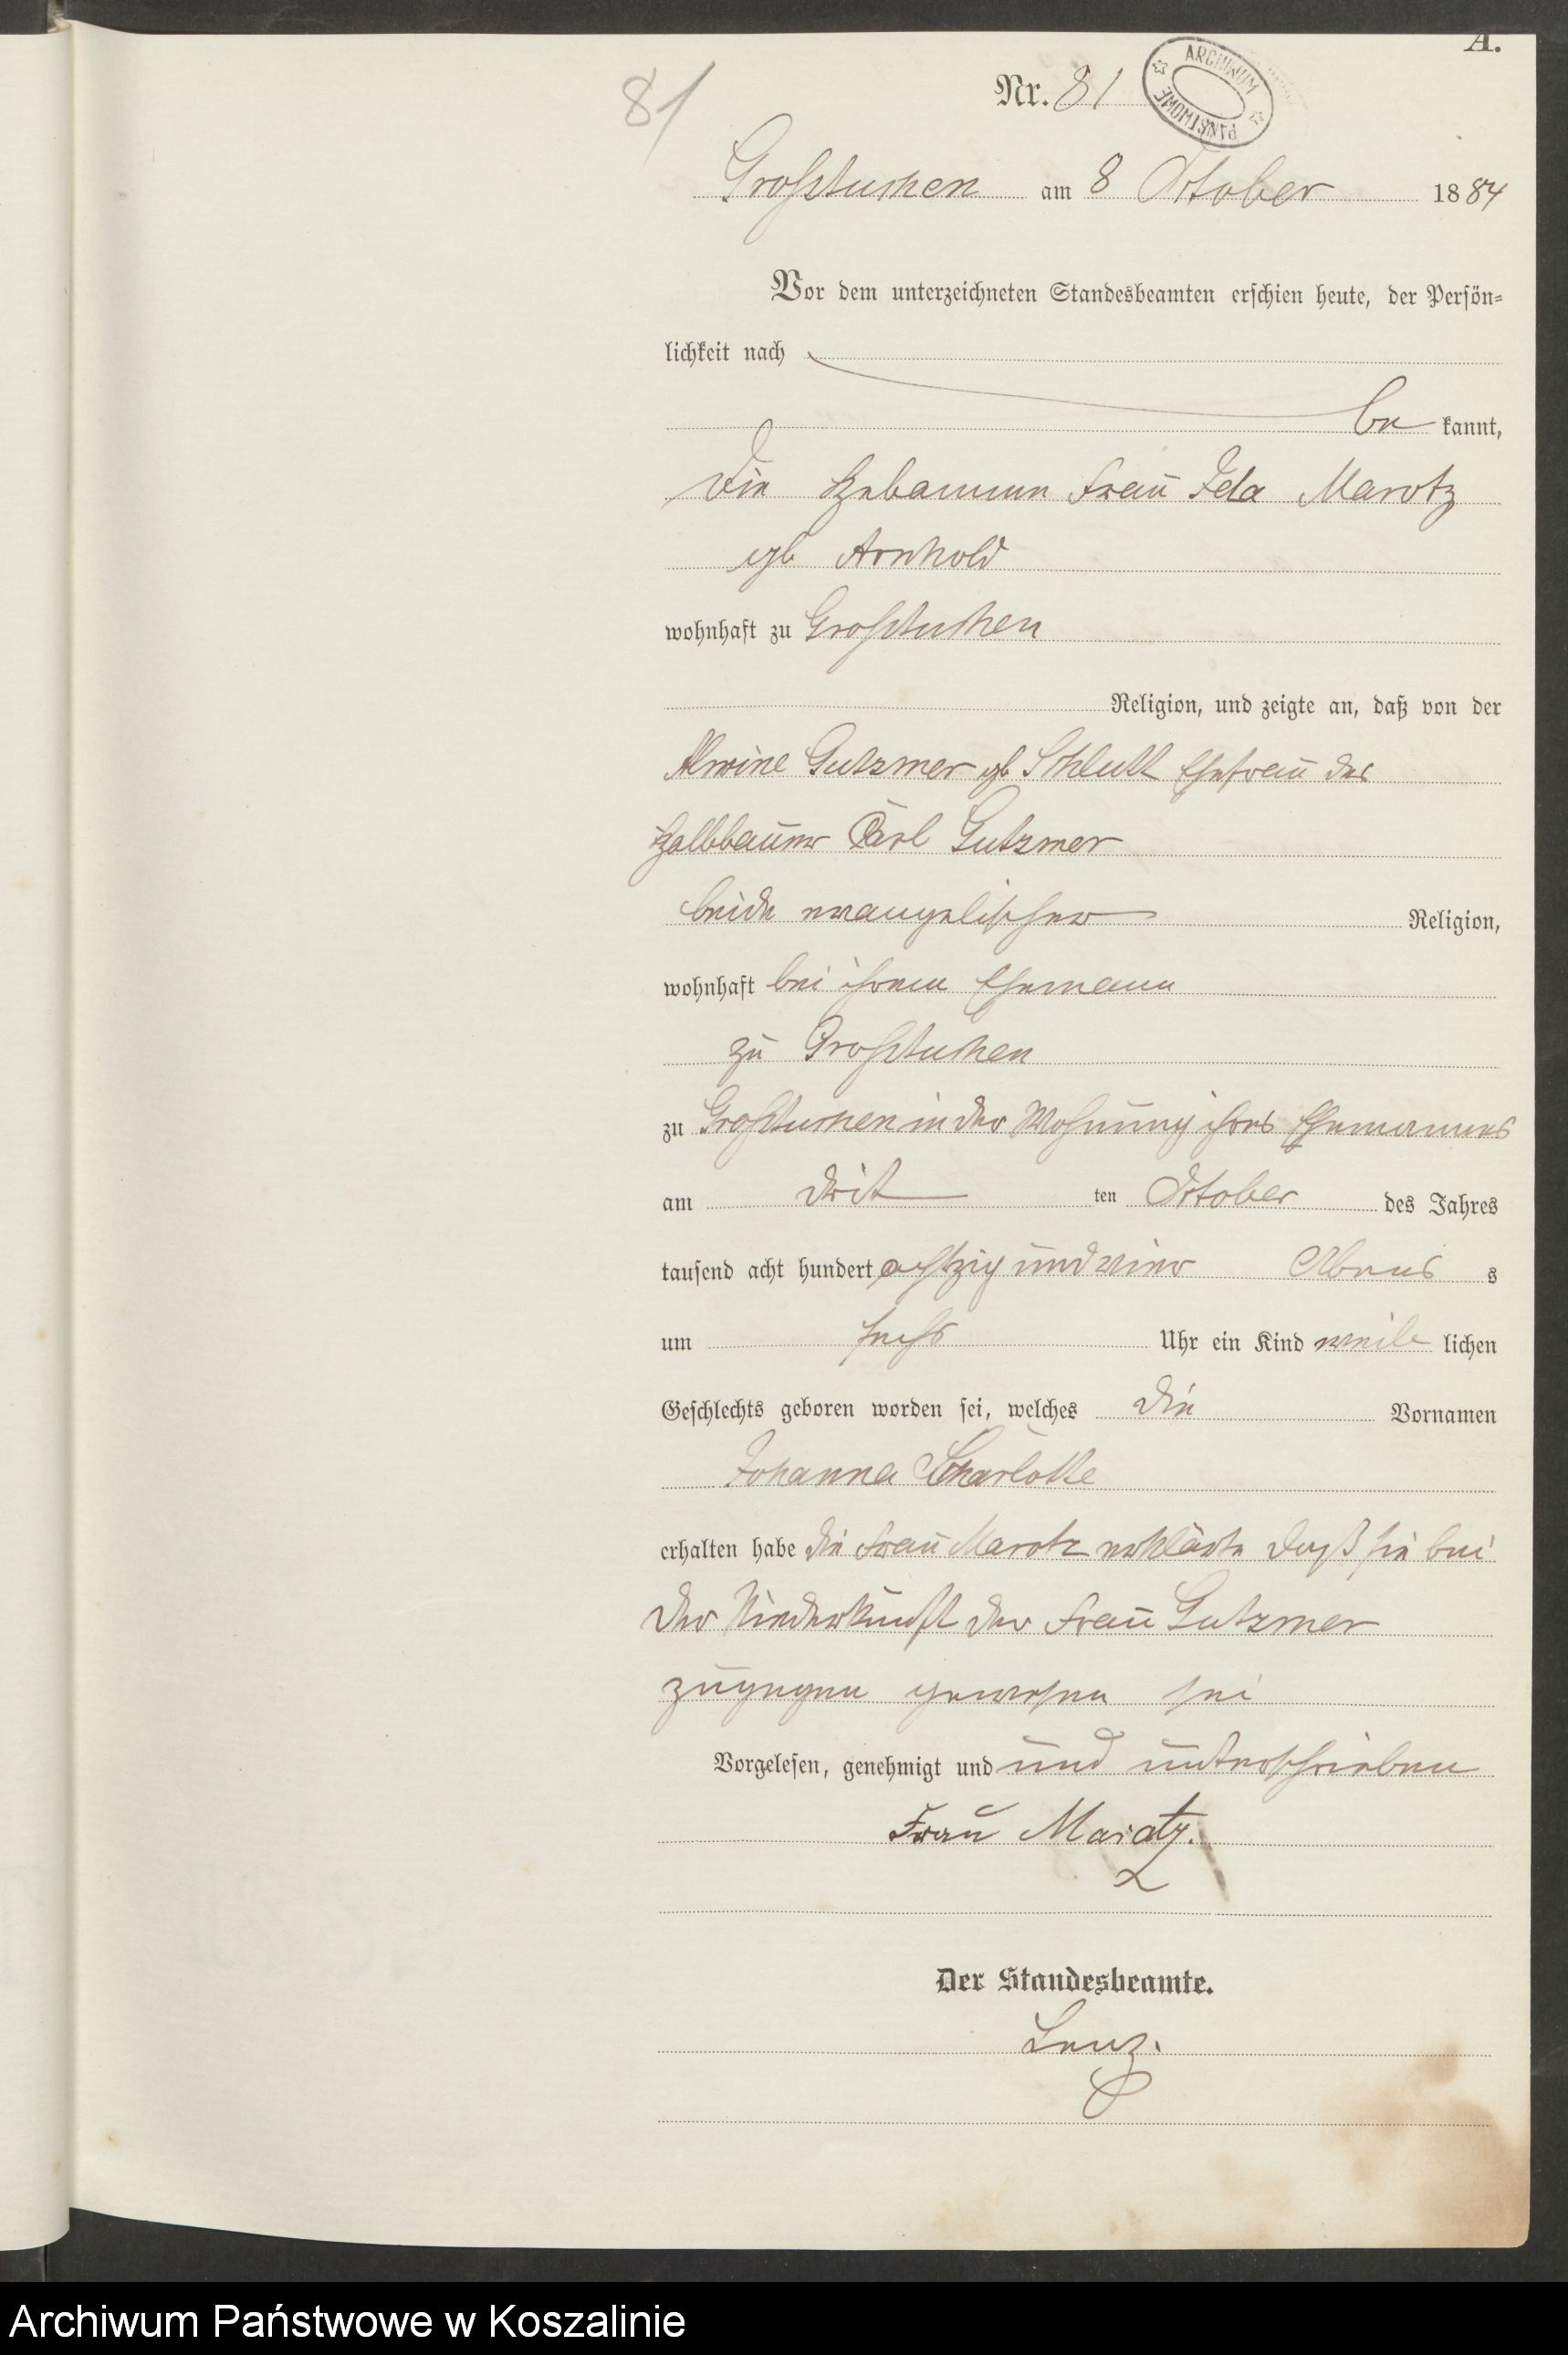 A.
81
Nr. 81
ARCHIWUM PAŃSTWOWE
Großtuchen am 8 October 1884
Vor dem unterzeichneten Standesbeamten erschien heute, der Persön-
lichkeit nach
be kannt,
die Hebamme Frau Ida Marotz
geb Arnhold
wohnhaft zu Großtuchen
Religion, und zeigte an, daß von der
Alwine Gutzmer gb Ehefrau des
Halbbauer Carl Gutzmer
beide evangelischer Religion,
wohnhaft bei ihrem Ehemann
zu Großtuchen
zu Großtuchen in der Wohnung ihres Ehemannes
am drit ten October des Jahres
tausend acht hundert achtzig und vier Abends s
um sechs Uhr ein Kind weib lichen
Geschlechts geboren worden sei, welches die Vornamen
Johanna Charlotte
erhalten habe die Frau Marotz erklärte daß sie bei
der Niederkunft der Frau Gutzmer
zugegen gewesen sei
Vorgelesen, genehmigt und und unterschrieben
Frau Marotz.
Der Standesbeamte.
Lenz.
Archiwum Państwowe w Koszalinie